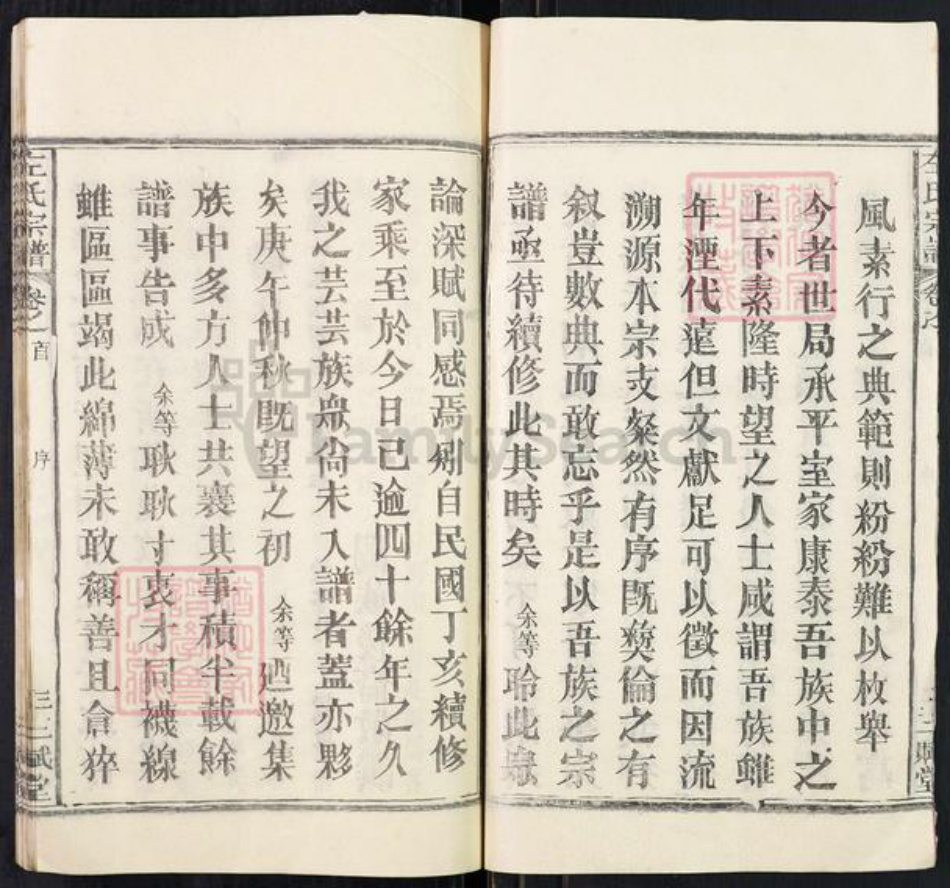 風素行之典範則紛紛難以枚舉
今者世局承平室家康泰吾族中之
上下素隆時望之人士咸謂吾族雖
年湮代遠但文獻足可以徵而因流
溯源本宗支粲然有序既彝倫之有
叙豈數典而敢忘乎是以吾族之宗
譜亟待續修此其時矣 余等聆此衆
論深賦同感焉剏自民國丁亥續修
家乘至於今日已逾四十餘年之久
我之芸芸族衆尙未入譜者蓋亦夥
矣庚午仲秋既望之初 余等廼邀集
族中多方人士共襄其事積半載餘
譜事告成 余等耿耿寸衷才同襪線
雖區區竭此綿薄未敢稱善且倉猝
左氏宗譜 卷之首 序 三 三賦堂
FamilySearch